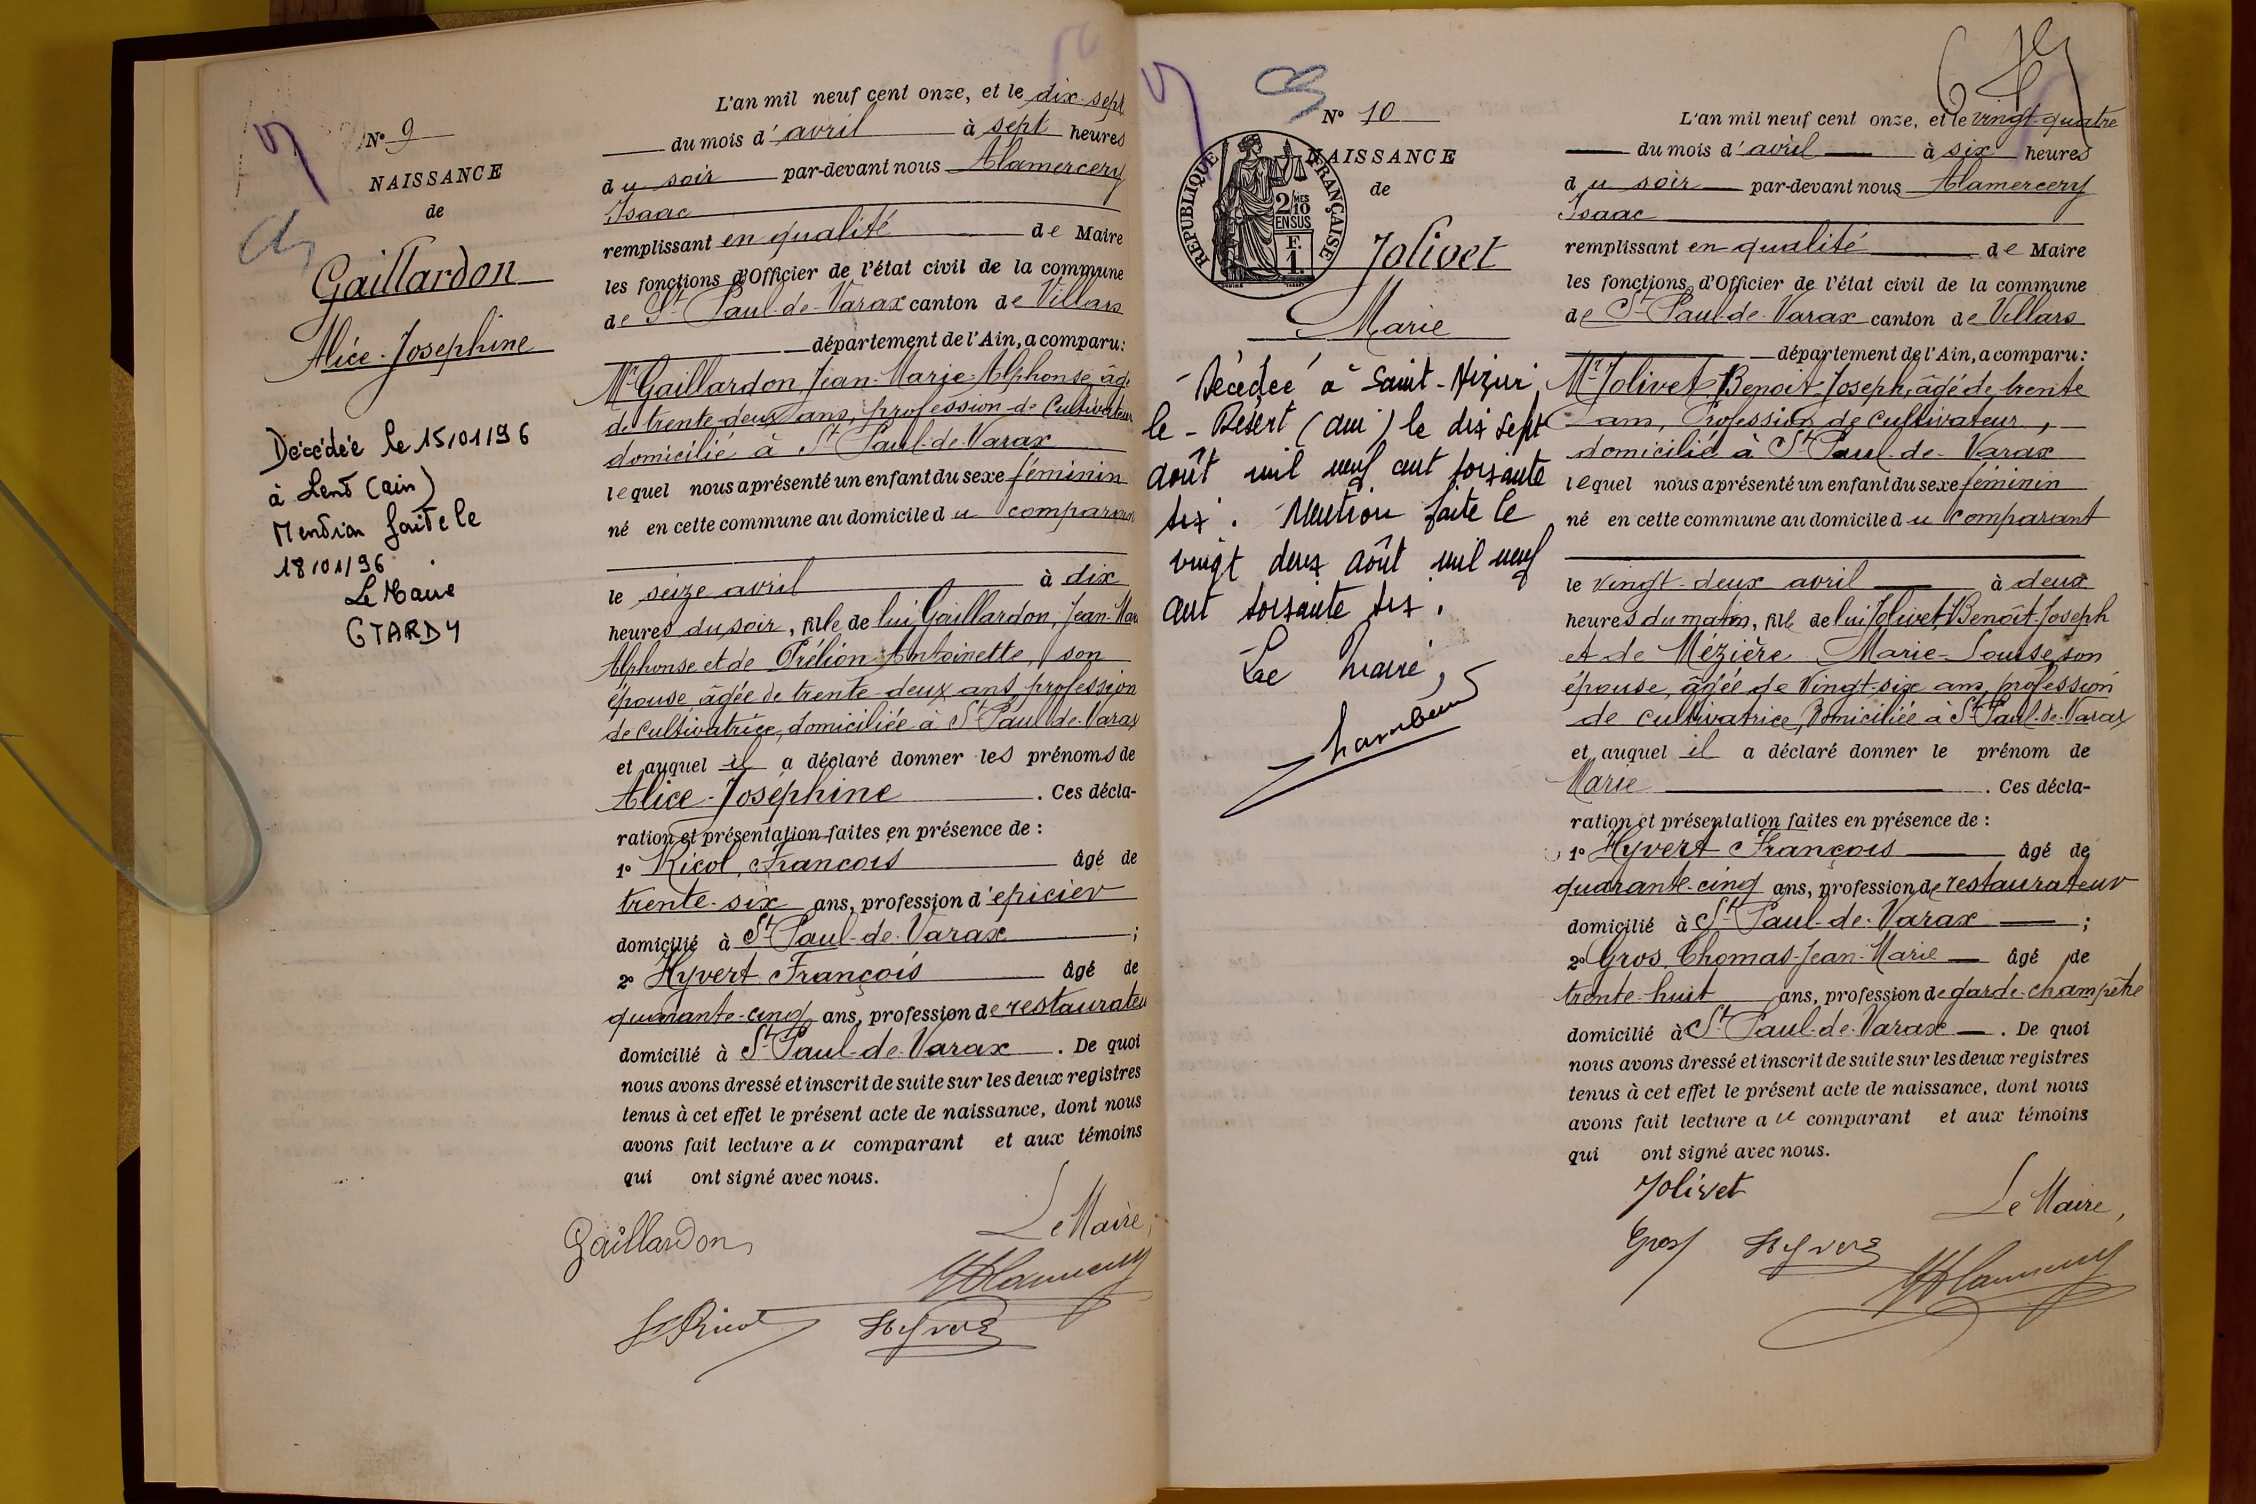 N° 9
NAISSANCE
de
Gaillardon
Alice-Joséphine
Décédée le 15/01/96
à Lent (ain)
Mention faite le
18/01/96
Le Maire
G TARDY
L'an mil neuf cent onze, et le dix-sept
du mois d'avril à sept heures
du soir par-devant nous Alamercery
Isaac
remplissant en qualité de Maire
les fonctions d'Officier de l'état civil de la commune
de St Paul-de-Varax canton de Villars
département de l'Ain, a comparu:
Mr Gaillardon Jean-Marie-Alphonse, âgé
de trente-deux ans, profession de Cultivateur
domicilié à St Paul-de-Varax
lequel nous a présenté un enfant du sexe féminin
né en cette commune au domicile du comparant
le seize avril à dix
heures du soir, fille de lui Gaillardon, Jean-Marie
Alphonse et de Prélion Antoinette, son
épouse, âgée de trente-deux ans, profession
de cultivatrice, domiciliée à St Paul-de-Varax
et auquel il a déclaré donner les prénoms de
Alice-Joséphine. Ces décla-
ration et présentation faites en présence de :
1° Ricol, François âgé de
trente-six ans, profession d'épicier
domicilié à St Paul-de-Varax ;
2° Hyvert François âgé de
quarante-cinq ans, profession de restaurateur
domicilié à St Paul-de-Varax. De quoi
nous avons dressé et inscrit de suite sur les deux registres
tenus à cet effet le présent acte de naissance, dont nous
avons fait lecture au comparant et aux témoins
qui ont signé avec nous.
Le Maire,
Gaillardon
Alamercery
Ricol Hyvert
N° 10
NAISSANCE
de
RÉPUBLIQUE FRANÇAISE
2/10 MES
EN SUS
F.
1.
Jolivet
Marie
Décédée à Saint-Nizier
le-Désert (ain) le dix sept
août mil neuf cent soixante
six. Mention faite le
vingt deux août mil neuf
cent soixante six.
Le maire,
L'an mil neuf cent onze, et le vingt-quatre
du mois d'avril à six heures
du soir par-devant nous Alamercery
Isaac
remplissant en qualité de Maire
les fonctions d'Officier de l'état civil de la commune
de St Paul-de-Varax canton de Villars
département de l'Ain, a comparu:
Mr Jolivet, Benoit-Joseph, âgé de trente
ans, Profession de cultivateur,
domicilié à St Paul-de-Varax
lequel nous a présenté un enfant du sexe féminin
né en cette commune au domicile du comparant
le vingt-deux avril à deux
heures du matin, fille de lui Jolivet, Benoît-Joseph
et de Mézière Marie-Louise son
épouse, âgée de vingt-six ans, profession
de cultivatrice, domiciliée à St Paul-de-Varax
et auquel il a déclaré donner le prénom de
Marie. Ces décla-
ration et présentation faites en présence de :
1° Hyvert François âgé de
quarante-cinq ans, profession de restaurateur
domicilié à St Paul-de-Varax ;
2° Gros, Thomas-Jean-Marie âgé de
trente-huit ans, profession de garde-champêtre
domicilié à St Paul-de-Varax. De quoi
nous avons dressé et inscrit de suite sur les deux registres
tenus à cet effet le présent acte de naissance, dont nous
avons fait lecture au comparant et aux témoins
qui ont signé avec nous.
Jolivet
Le Maire,
Gros Hyvert Alamercery